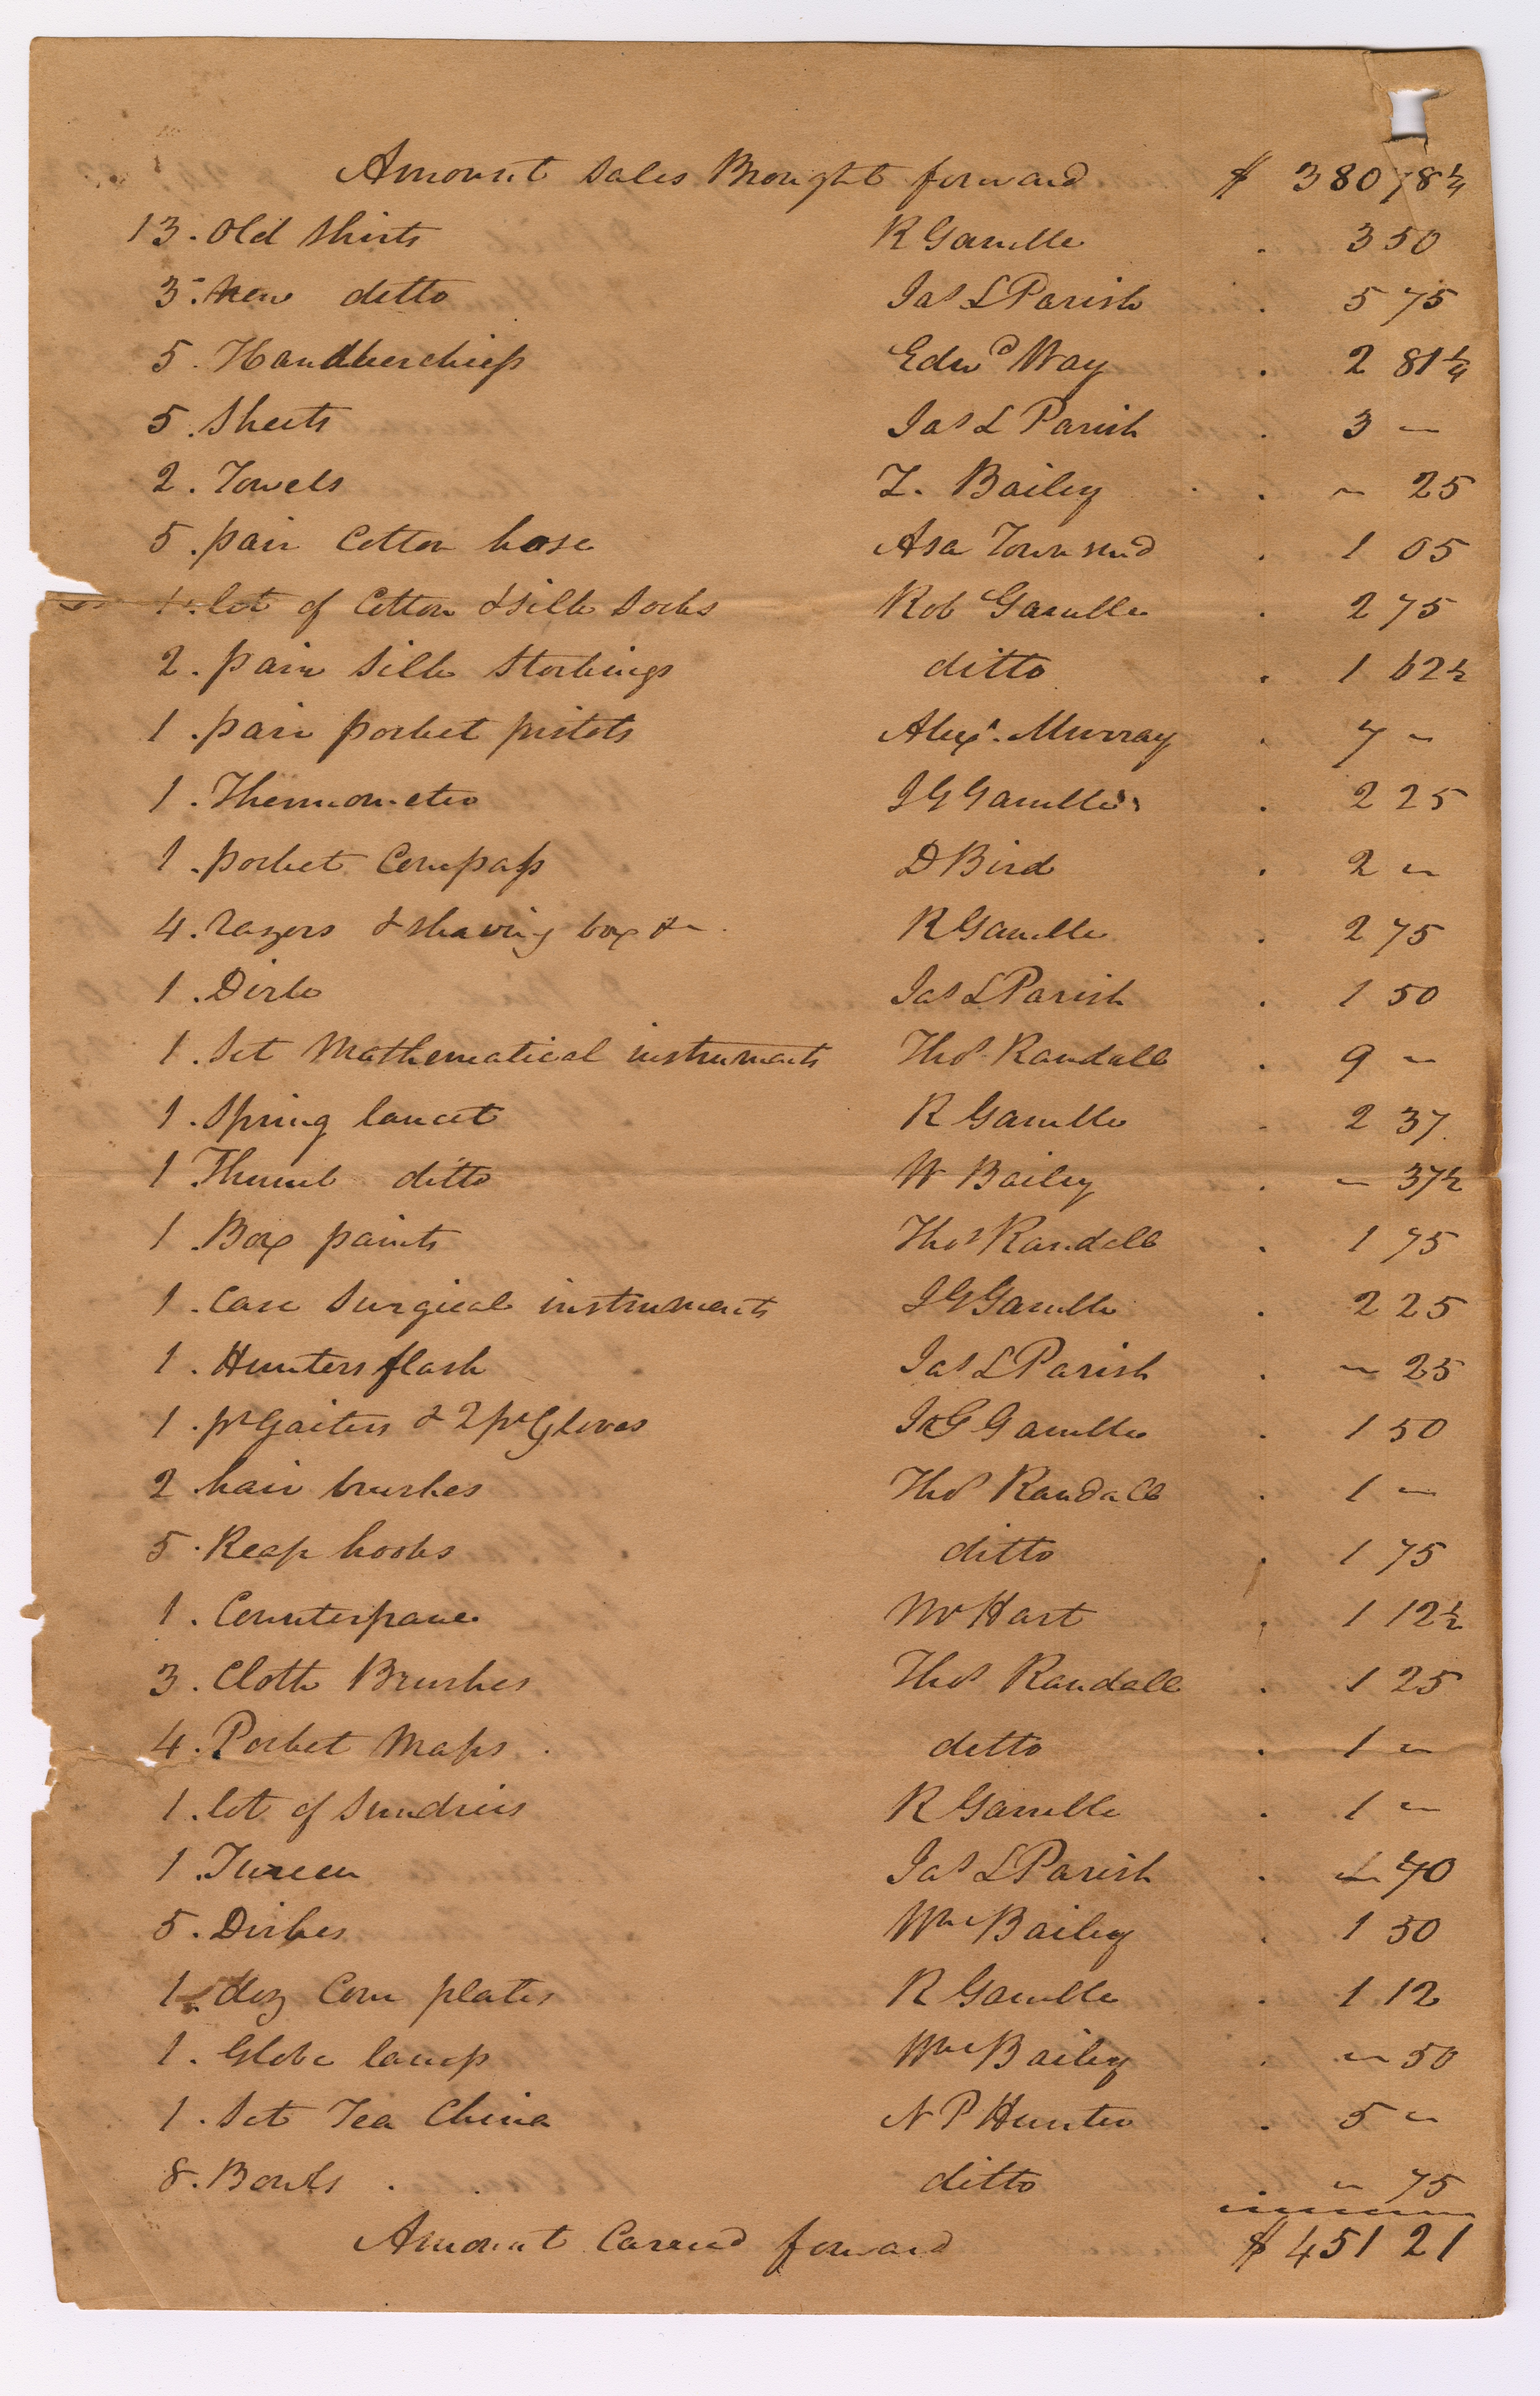 Amount Sales Brought forward $ 380 78 1/4
13. Old Shirts R Gamble . 3 50
3. New ditto Jas L Parish . 5 75
5. Handkerchiefs Edwd Way . 2 81 1/4
5. Sheets Jas L Parish . 3 —
2. Towels Z. Bailey . — 25
5. pair Cotton hose Asa Townsend . 1 05
1. lot of Cotton & Silk Socks Rob Gamble . 2 75
2. pair Silk Stockings ditto . 1 62 1/2
1. pair pocket pistols Alexr. Murray . 7 —
1. Thermometer J G Gamble . 2 25
1. pocket Compass D Bird . 2 —
4. razors & shaving box &c R Gamble . 2 75
1. Dirk Jas L Parish . 1 50
1. Set Mathematical instruments Thos Randall . 9 —
1. Spring lancet R Gamble . 2 37
1 Thumb ditto W Bailey . — 37 1/2
1. Box paints Thos Randall . 1 75
1. Case Surgical instruments J G Gamble . 2 25
1. Hunters flask Jas L Parish . — 25
1. pr Gaiters & 2 pr Gloves J G Gamble . 1 50
2 hair brushes Thos Randall . 1 —
5. Reap hooks ditto . 1 75
1. Counterpane Mr Hart . 1 12 1/2
3. Cloth Brushes Thos Randall . 1 25
4. Pocket Maps . ditto . 1 —
1. lot of Sundries R Gamble . 1 —
1. Tureen Jas L Parish . — 70
5. Dishes Wm Bailey . 1 50
1. doz Com plates R Gamble . 1 12
1. Globe lamp Wm Bailey . — 50
1. Set Tea China N P Hunter . 5 —
8. Bowls . . ditto — 75
Amount Carried forward $ 451 21